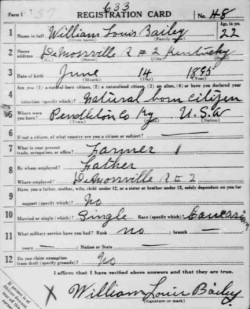 Form 1 633 No. 48
REGISTRATION CARD
1 Name in full William Louis Bailey Age, in yrs. 22
2 Home address DeMossville R # 2 Kentucky
3 Date of birth June 14 1895
4 Are you (1) a natural-born citizen, (2) a naturalized citizen, (3) an alien, (4) or have you declared your intention (specify which)? Natural born citizen
5 Where were you born? Pendleton Co Ky U.S.A
6 If not a citizen, of what country are you a citizen or subject?
7 What is your present trade, occupation, or office? Farmer 1
8 By whom employed? Father
Where employed? DeMossville R # 2
9 Have you a father, mother, wife, child under 12, or a sister or brother under 12, solely dependent on you for support (specify which)? No
10 Married or single (which)? Single Race (specify which)? Caucasian
11 What military service have you had? Rank no branch
years Nation or State
12 Do you claim exemption from draft (specify grounds)? No
I affirm that I have verified above answers and that they are true.
X William Louis Bailey
(Signature or mark)